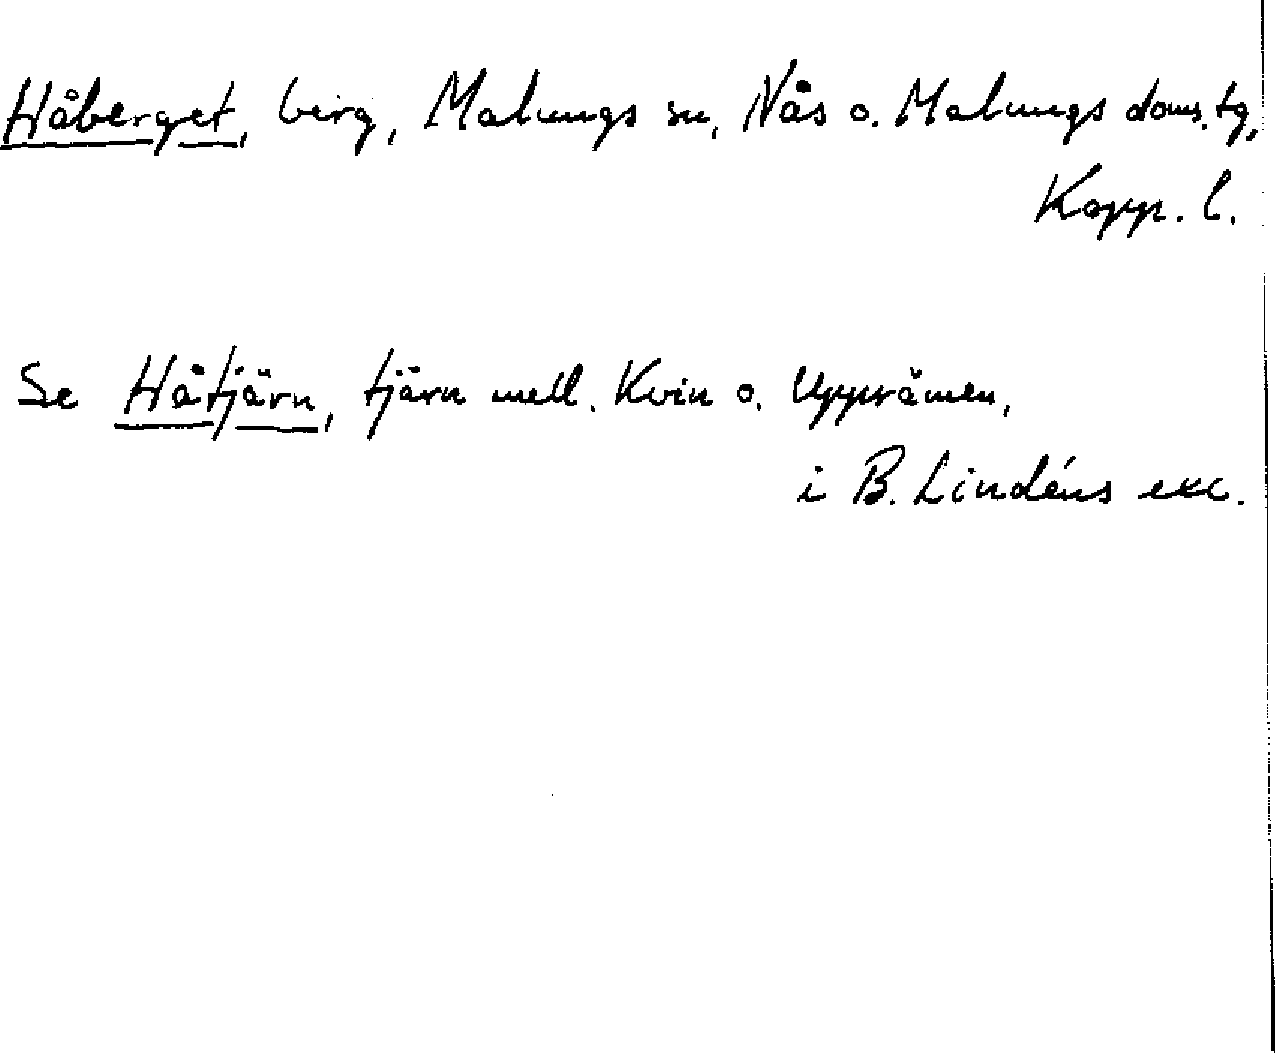 Håberget, berg, Malungs sn, Nås o. Malungs doms. tg,
Kopp. l.
Se Håtjärn, tjärn mell. Kvin o. Upprämen,
i B. Lindéns exc.